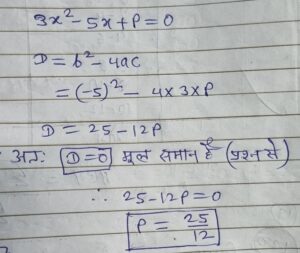 3x²-5x+P=0
D=b²-4ac
=(-5)²-4×3×P
D=25-12P
अतः D=0 मूल समान है (प्रश्न से)
∴ 25-12P=0
P=25/12